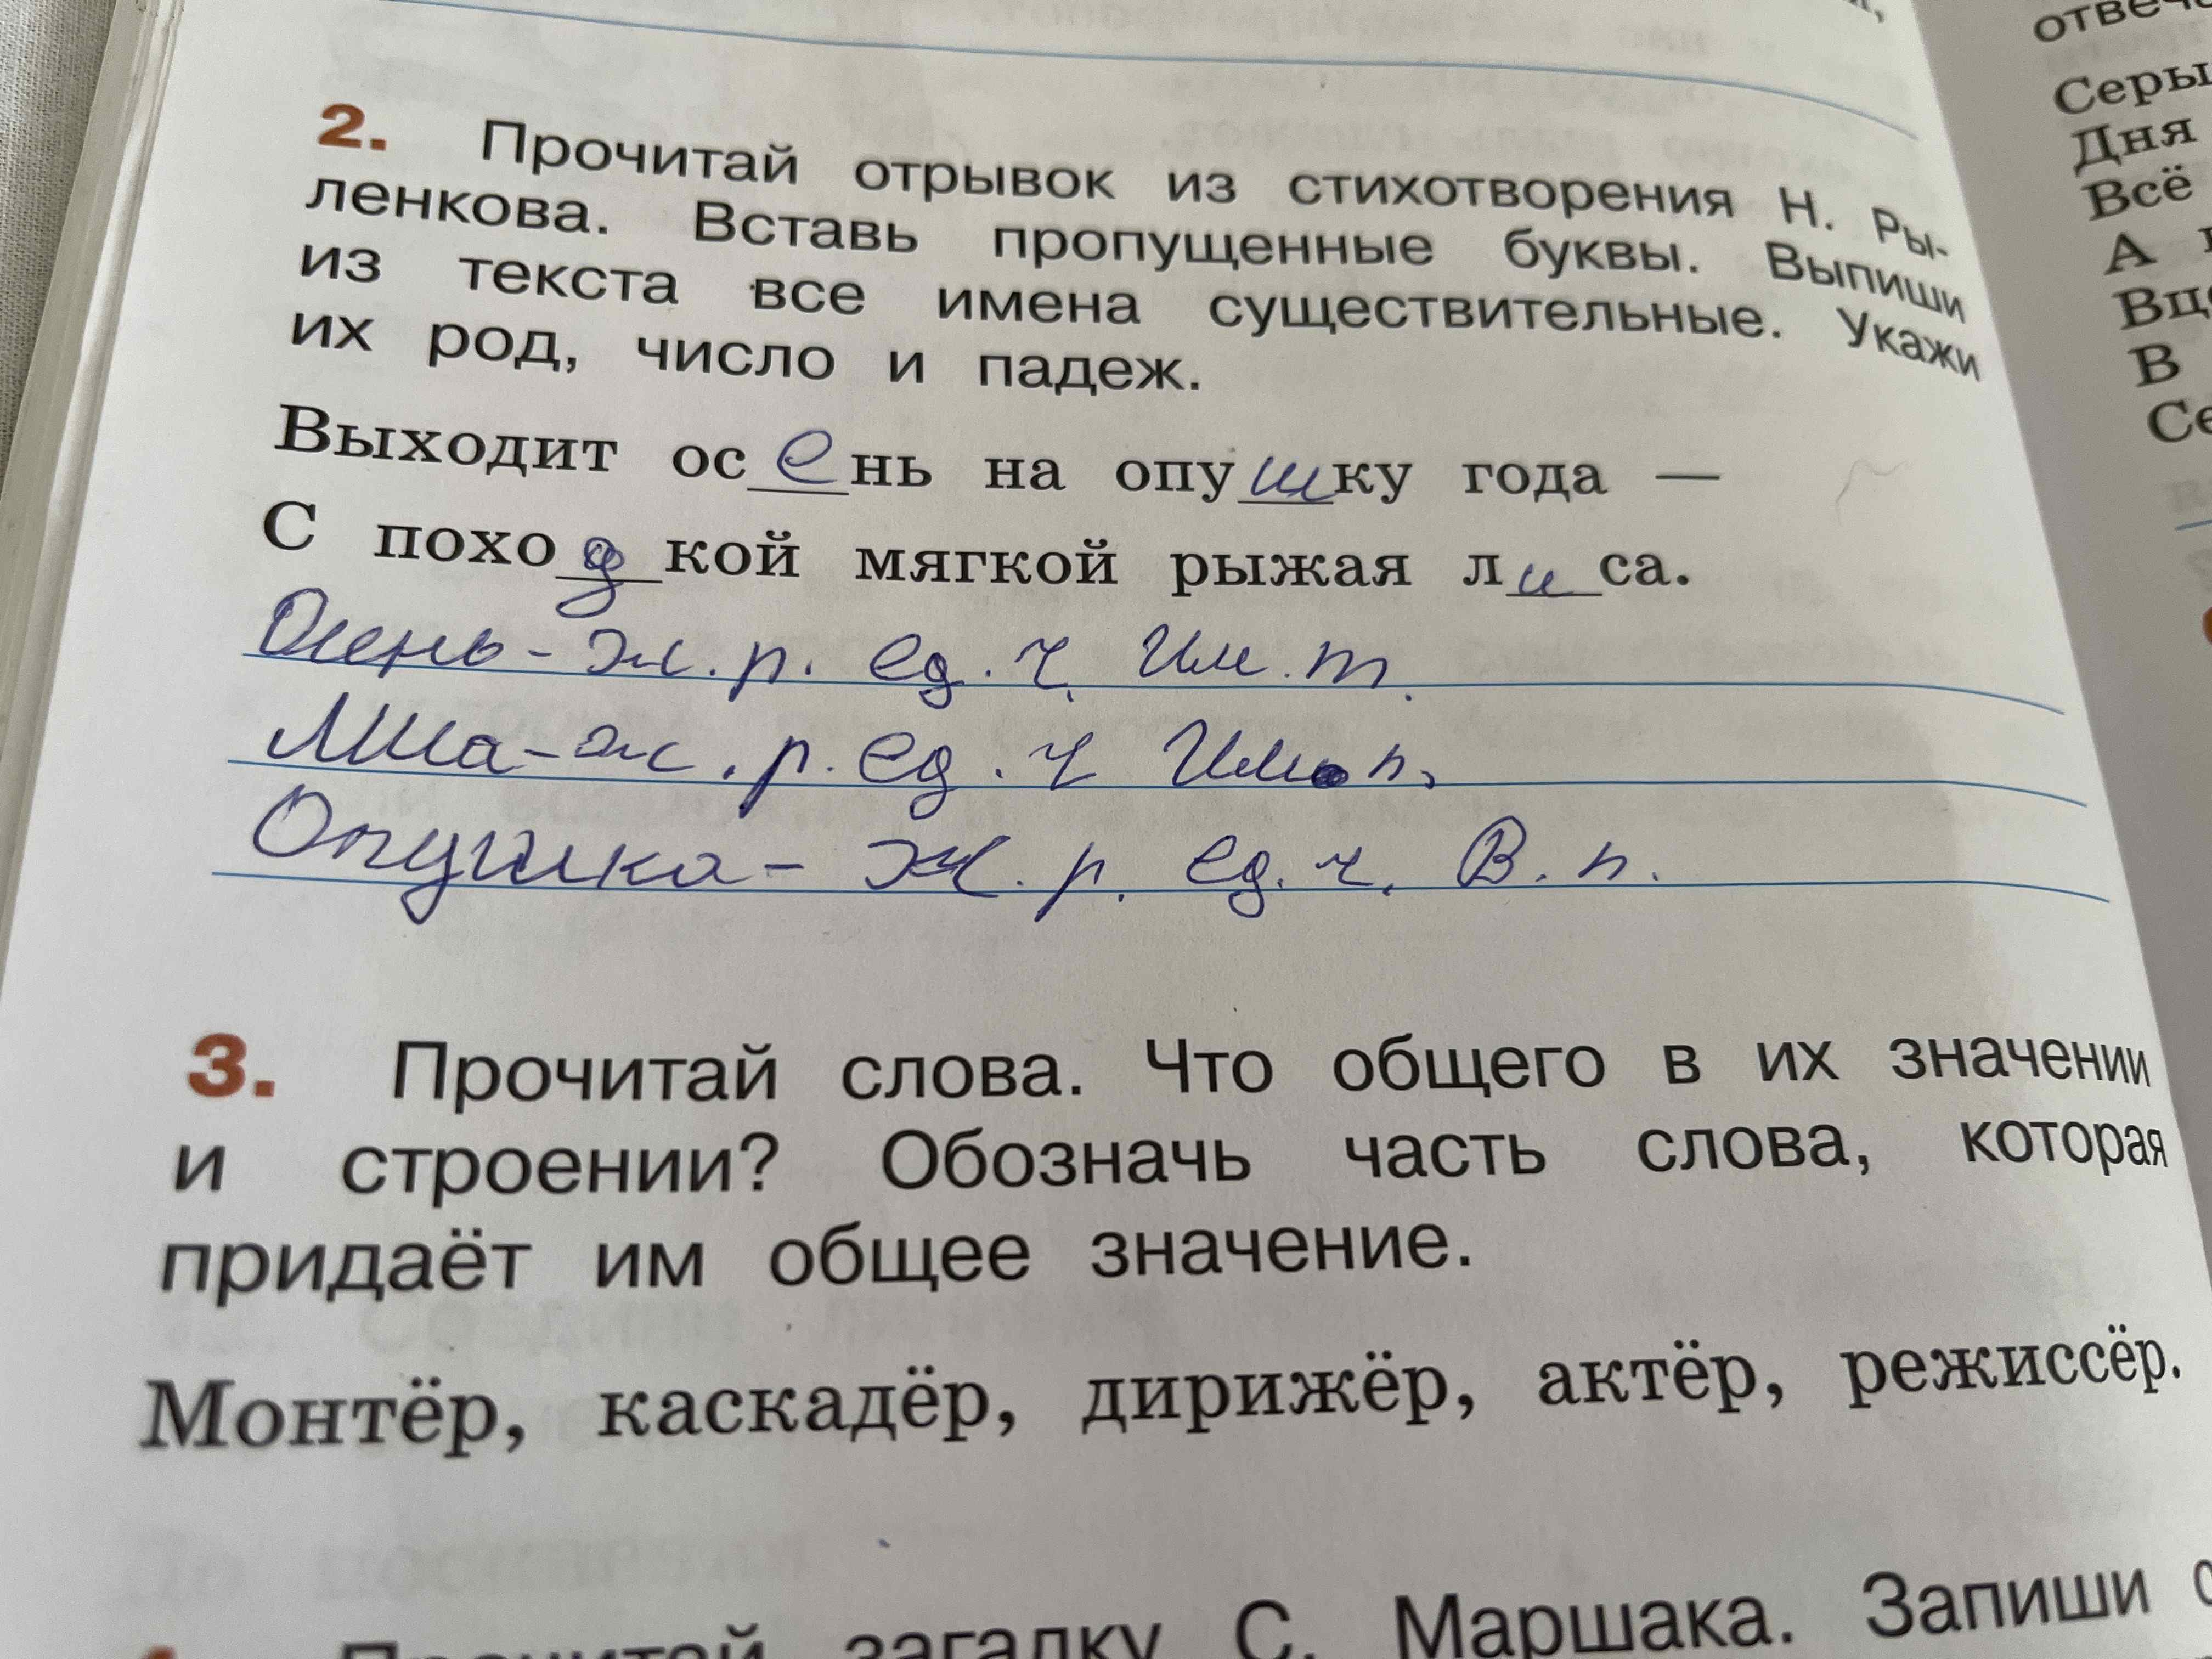 2. Прочитай отрывок из стихотворения Н. Ры-
ленкова. Вставь пропущенные буквы. Выпиши
из текста все имена существительные. Укажи
их род, число и падеж.
Выходит осень на опушку года —
С походкой мягкой рыжая лиса.
Осень - ж.р. ед.ч. Им.п.
Лиса - ж.р. ед.ч Им.п.
Опушка - ж.р. ед.ч. В.п.
3. Прочитай слова. Что общего в их значении
и строении? Обозначь часть слова, которая
придаёт им общее значение.
Монтёр, каскадёр, дирижёр, актёр, режиссёр.
Прочитай загадку С. Маршака. Запиши
Серы
Дня
Всё
А
В